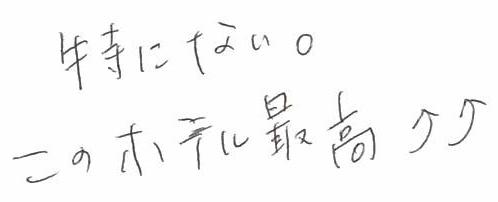 特にない。
このホテル最高⤴⤴